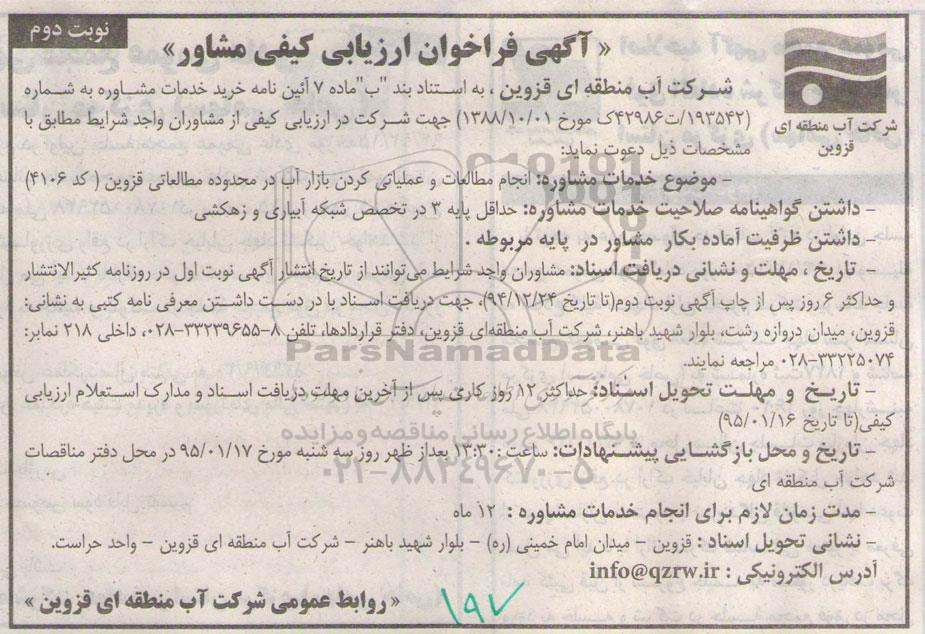 نوبت دوم
« آگهی فراخوان ارزیابی کیفی مشاور»
شرکت آب منطقه ای
قزوین
شرکت آب منطقه ای قزوین ، به استناد بند "ب"ماده ۷ آئین نامه خرید خدمات مشاوره به شماره
(۱۹۳۵۴۲/ت۴۲۹۸۶ک مورخ ۱۳۸۸/۱۰/۰۱) جهت شرکت در ارزیابی کیفی از مشاوران واجد شرایط مطابق با
مشخصات ذیل دعوت نماید:
– موضوع خدمات مشاوره: انجام مطالعات و عملیاتی کردن بازار آب در محدوده مطالعاتی قزوین ( کد ۴۱۰۶)
– داشتن گواهینامه صلاحیت خدمات مشاوره: حداقل پایه ۳ در تخصص شبکه آبیاری و زهکشی
–داشتن ظرفیت آماده بکار مشاور در پایه مربوطه .
– تاریخ ، مهلت و نشانی دریافت اسناد: مشاوران واجد شرایط می‌توانند از تاریخ انتشار آگهی نوبت اول در روزنامه کثیرالانتشار
و حداکثر ۶ روز پس از چاپ آگهی نوبت دوم(تا تاریخ ۹۴/۱۲/۲۴). جهت دریافت اسناد با در دست داشتن معرفی نامه کتبی به نشانی:
قزوین، میدان دروازه رشت، بلوار شهید باهنر، شرکت آب منطقه‌ای قزوین، دفتر قراردادها، تلفن ۸–۳۳۲۳۹۶۵۵–۰۲۸، داخلی ۲۱۸ نمابر:
۳۳۲۲۵۰۷۴–۰۲۸ مراجعه نمایند.
– تاریخ و مهلت تحویل اسناد: حداکثر ۱۲ روز کاری پس از آخرین مهلت دریافت اسناد و مدارک استعلام ارزیابی
کیفی(تا تاریخ ۹۵/۰۱/۱۶)
– تاریخ و محل بازگشایی پیشنهادات: ساعت :۱۳:۳۰ بعداز ظهر روز سه شنبه مورخ ۹۵/۰۱/۱۷ در محل دفتر مناقصات
شرکت آب منطقه ای.
– مدت زمان لازم برای انجام خدمات مشاوره : ۱۲ ماه
– نشانی تحویل اسناد: قزوین – میدان امام خمینی (ره) – بلوار شهید باهنر – شرکت آب منطقه ای قزوین – واحد حراست.
آدرس الکترونیکی : info@qzrw.ir
« روابط عمومی شرکت آب منطقه ای قزوین »
۱۹۷
ParsNamadData
پایگاه اطلاع رسانی مناقصه و مزایده
۰۲۱–۸۸۳۴۹۶۷۰–۵